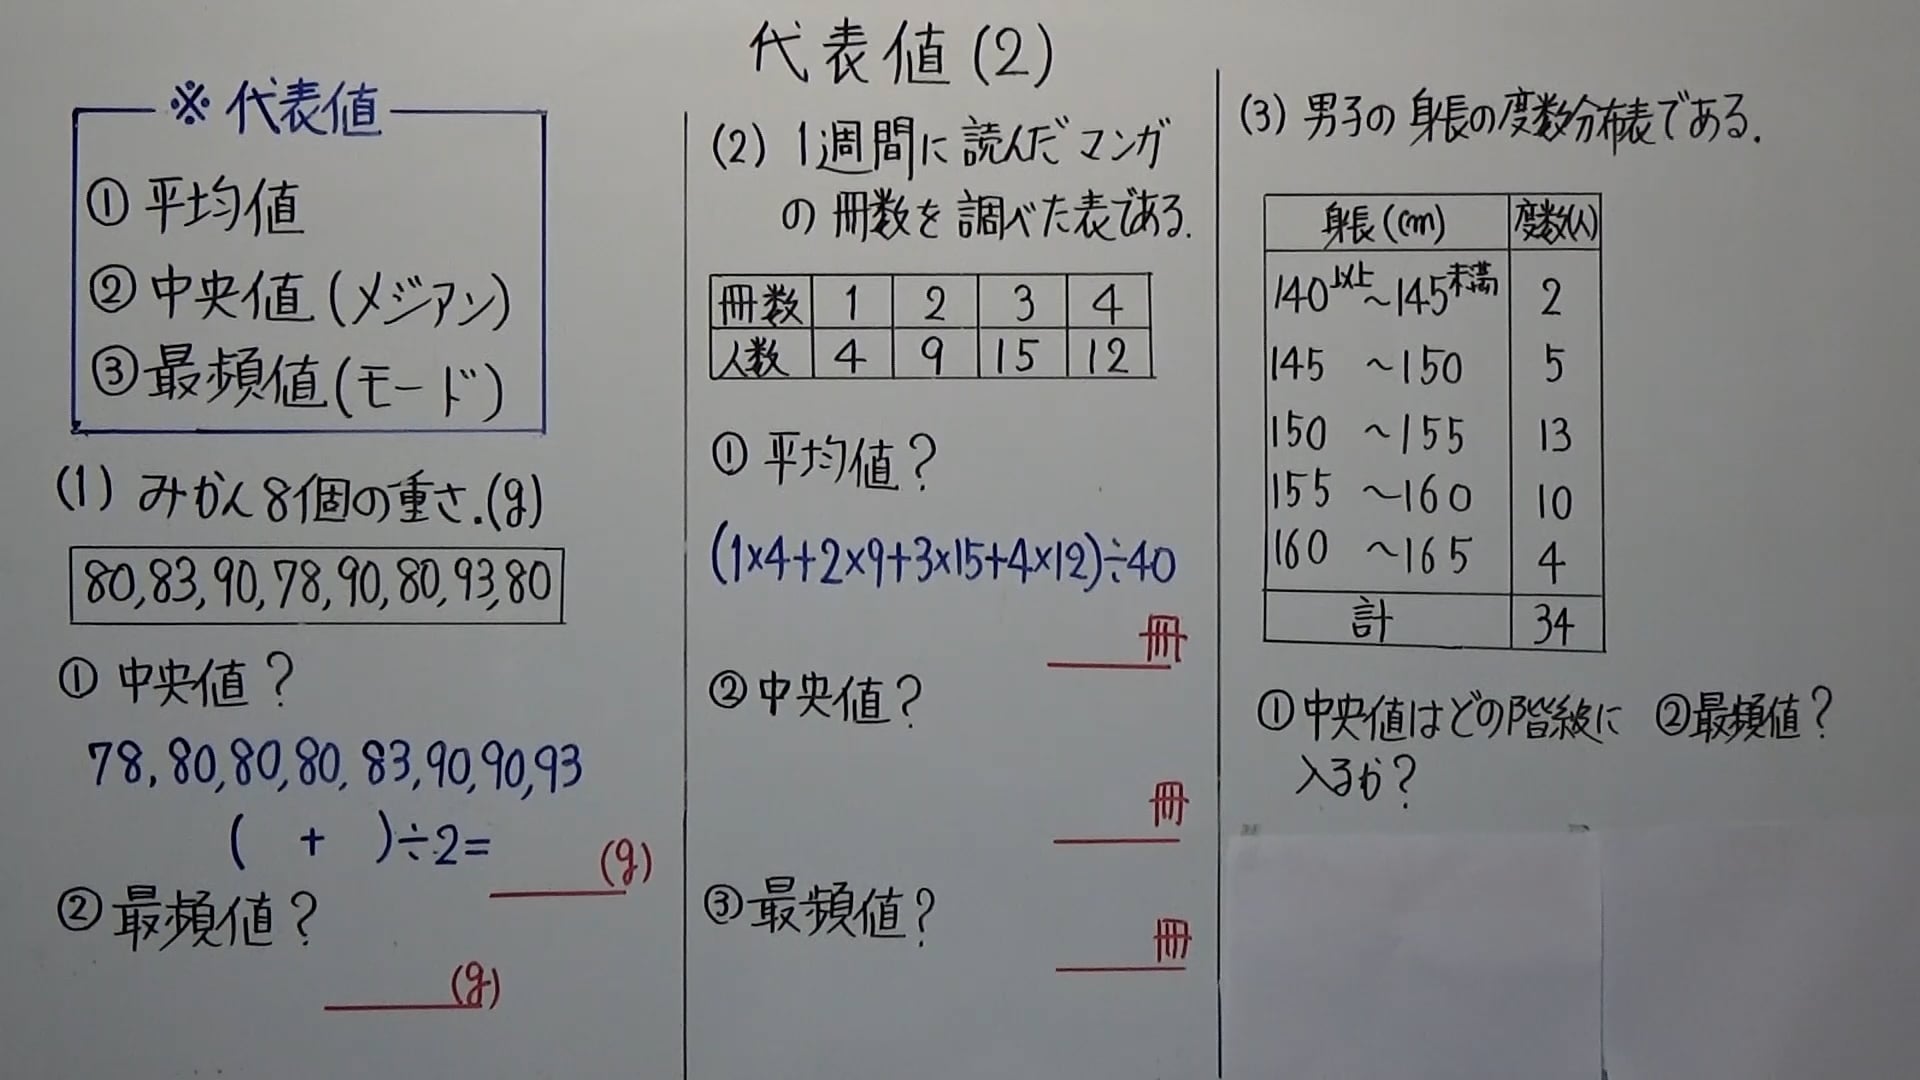 代表値(2)
※代表値
①平均値
②中央値(メジアン)
③最頻値(モード)
(1) みかん8個の重さ.(g)
80,83,90,78,90,80,93,80
①中央値?
78,80,80,80,83,90,90,93
( + )÷2= (g)
②最頻値?
(g)
(2) 1週間に読んだマンガ
の冊数を調べた表である.
冊数 1 2 3 4
人数 4 9 15 12
①平均値?
(1×4+2×9+3×15+4×12)÷40
冊
②中央値?
冊
③最頻値?
冊
(3) 男子の身長の度数分布表である.
身長(cm) 度数(人)
140以上~145未満 2
145 ~150 5
150 ~155 13
155 ~160 10
160 ~165 4
計 34
①中央値はどの階級に
入るか?
②最頻値?